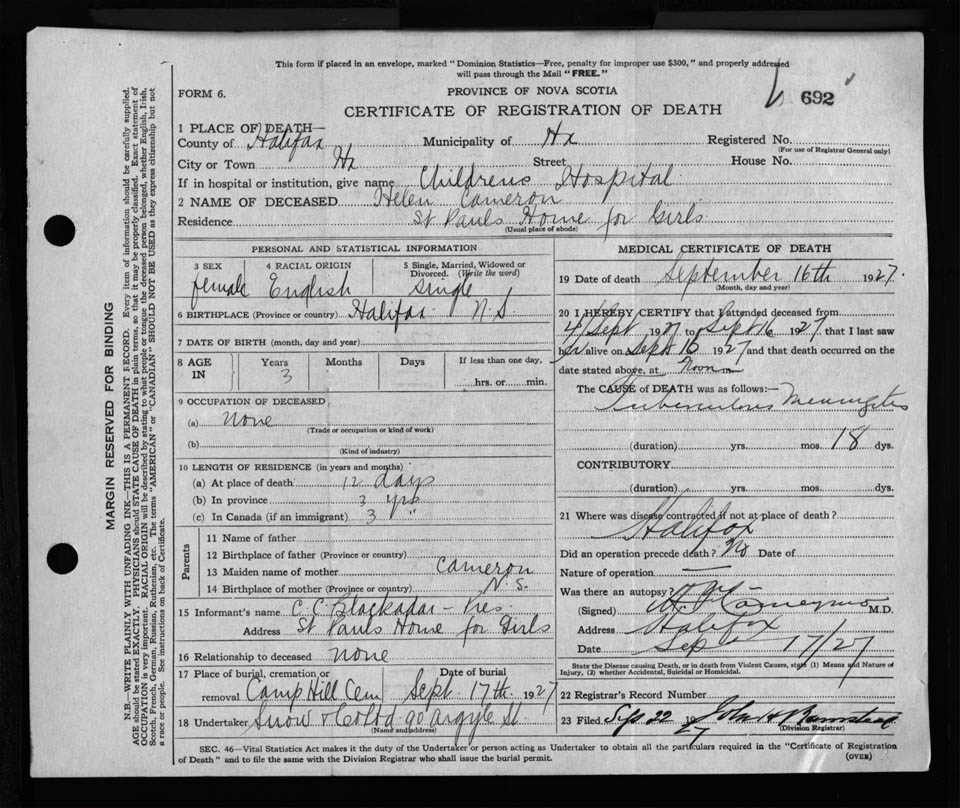 This form if placed in an envelope, marked "Dominion Statistics—Free, penalty for improper use $300," and properly addressed
will pass through the Mail "FREE."
FORM 6.
PROVINCE OF NOVA SCOTIA
692
CERTIFICATE OF REGISTRATION OF DEATH
1 PLACE OF DEATH—
County of Halifax Municipality of Hx Registered No.
(For use of Registrar General only)
City or Town Hx Street House No.
If in hospital or institution, give name Childrens Hospital
2 NAME OF DECEASED Helen Cameron
Residence St Pauls Home for Girls
(Usual place of abode)
PERSONAL AND STATISTICAL INFORMATION
3 SEX 4 RACIAL ORIGIN 5 Single, Married, Widowed or
Divorced. (Write the word)
female English Single
6 BIRTHPLACE (Province or country) Halifax N.S.
7 DATE OF BIRTH (month, day and year)
8 AGE IN Years Months Days If less than one day,
3 hrs. or min.
9 OCCUPATION OF DECEASED
(a) none
(Trade or occupation or kind of work)
(b)
(Kind of industry)
10 LENGTH OF RESIDENCE (in years and months)
(a) At place of death 12 days
(b) In province 3 yrs
(c) In Canada (if an immigrant) 3 "
Parents
11 Name of father
12 Birthplace of father (Province or country)
13 Maiden name of mother Cameron
14 Birthplace of mother (Province or country) N.S.
15 Informant's name C. C. Blackadar – Pres.
Address St Pauls Home for Girls
16 Relationship to deceased none
17 Place of burial, cremation or removal Date of burial
Camp Hill Cem Sept 17th 1927
18 Undertaker Snow & Co Ltd 90 Argyle St.
(Name and address)
MEDICAL CERTIFICATE OF DEATH
19 Date of death September 16th 1927.
(Month, day and year)
20 I HEREBY CERTIFY that I attended deceased from
4 Sept 1927 to Sept 16 1927 that I last saw
her alive on Sept 16 1927 and that death occurred on the
date stated above, at noon m
The CAUSE of DEATH was as follows:—
Tuberculous Meningitis
(duration) yrs. mos. 18 dys.
CONTRIBUTORY
(duration) yrs. mos. dys.
21 Where was disease contracted if not at place of death?
Halifax
Did an operation precede death? No Date of
Nature of operation —
Was there an autopsy?
(Signed) M.D.
Address Halifax
Date Sep 17/27
State the Disease causing Death, or in death from Violent Causes, state (1) Means and Nature of
Injury, (2) whether Accidental, Suicidal or Homicidal.
22 Registrar's Record Number
23 Filed Sep 22 1927 John H
(Division Registrar)
SEC. 46—Vital Statistics Act makes it the duty of the Undertaker or person acting as Undertaker to obtain all the particulars required in the "Certificate of Registration
of Death" and to file the same with the Division Registrar who shall issue the burial permit.
(OVER)
MARGIN RESERVED FOR BINDING
N.B.—WRITE PLAINLY WITH UNFADING INK—THIS IS A PERMANENT RECORD. Every item of information should be carefully supplied.
AGE should be stated EXACTLY. PHYSICIANS should STATE CAUSE OF DEATH in plain terms, so that it may be properly classified. Exact statement of
OCCUPATION is very important. RACIAL ORIGIN will be described by stating to what people or tongue the deceased person belonged, whether English, Irish,
Scotch, French, German, Russian, Ruthenian, etc. The terms "AMERICAN" or "CANADIAN" SHOULD NOT BE USED as they express citizenship but not
a race or people. See instructions on back of Certificate.